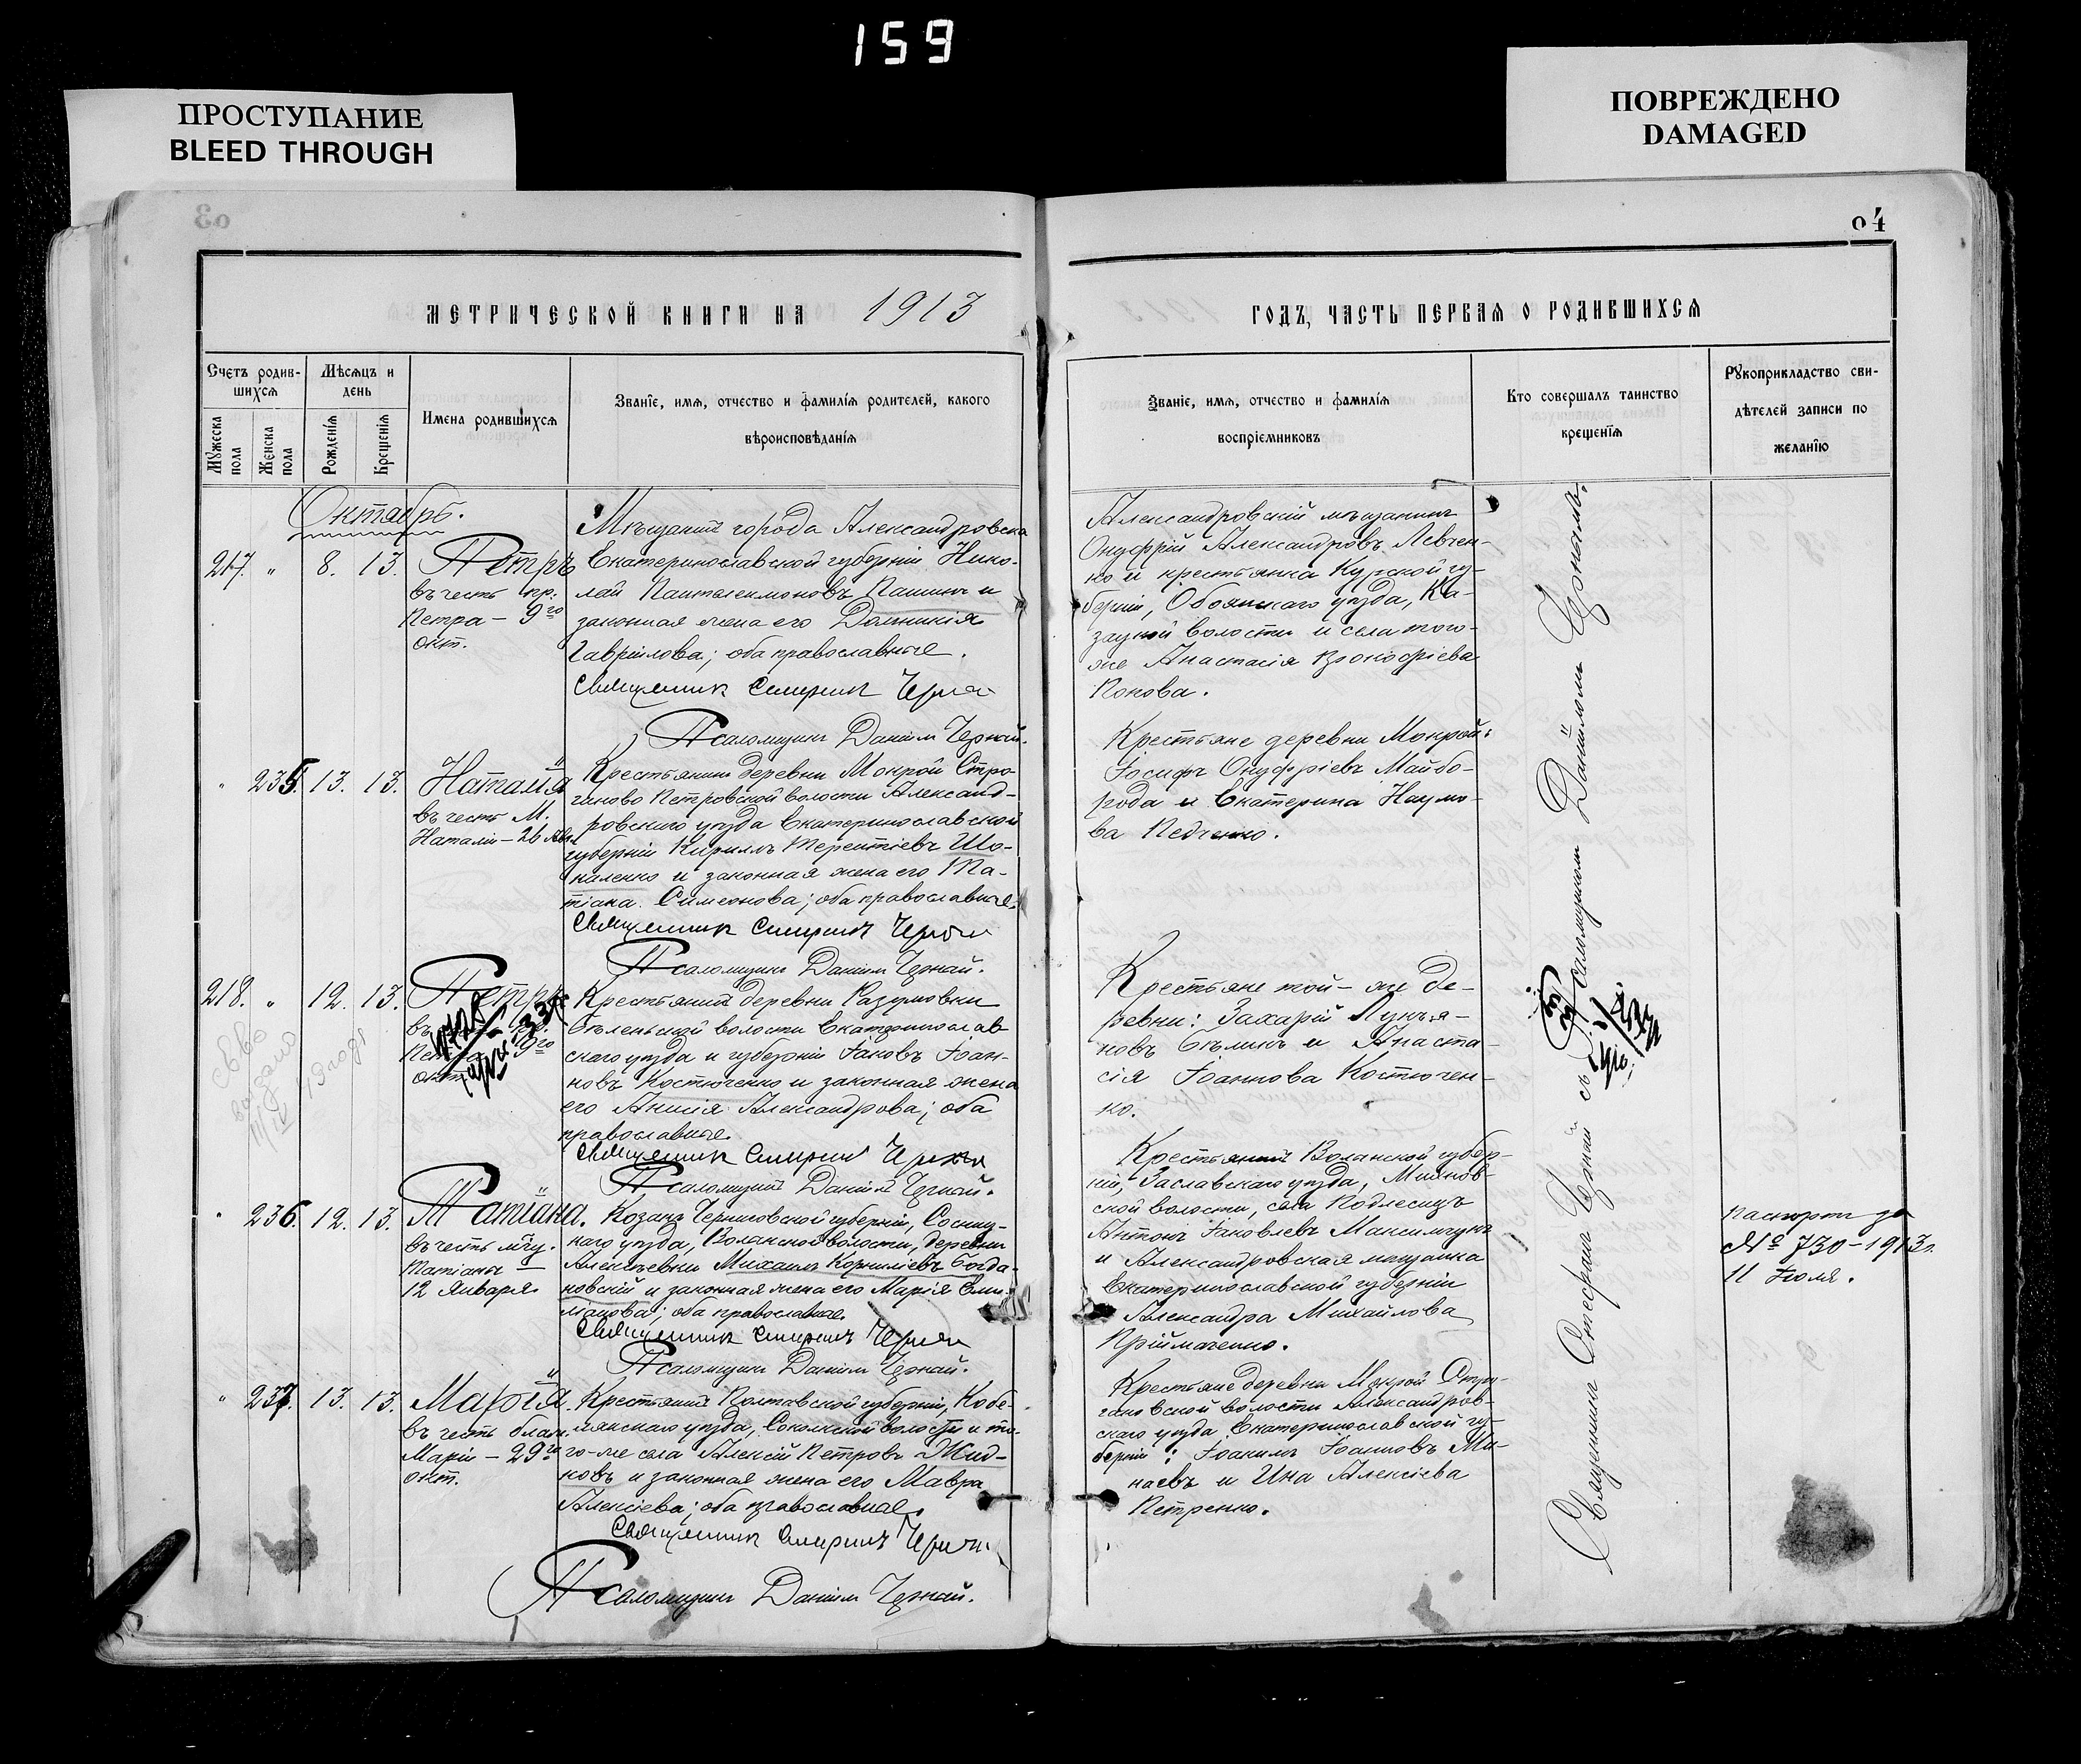 159
ПРОСТУПАНИЕ
BLEED THROUGH
ПОВРЕЖДЕНО
DAMAGED
04
МЕТРИЧЕСКОЙ КНИГИ НА 1913
ГОДЪ, ЧАСТЬ ПЕРВАЯ О РОДИВШИХСЯ
Счетъ родив-
шихся
Мужеска пола
Женска пола
Мѣсяцъ и
день
Рожденія
Крещенія
Имена родившихся
Званіе, имя, отчество и фамилія родителей, какого
вѣроисповѣданія
Званіе, имя, отчество и фамилія
воспріемниковъ
Кто совершалъ таинство
крещенія
Рукоприкладство сви-
дѣтелей записи по
желанію
Октябрь.
217. " 8. 13.
Петръ
въ честь пр.
Петра – 9го
окт.
Мѣщанинъ города Александровска
Екатеринославской губерніи Нико-
лай Пантелеимоновъ Пашинъ и
законная жена его Домникія
Гавріилова; оба православные.
Священникъ
Псаломщикъ Даніилъ Черный.
Александровскій мѣщанинъ
Онуфрій Александровъ Левчен-
ко и крестьянка Курской гу-
берніи, Обоянскаго уѣзда, Ка-
зацкой волости и села того-
же Анастасія
Конова.
" 235. 13. 13.
Наталія
въ честь М.
Наталіи – 26 Авг.
Крестьянинъ деревни Мокрой Стро-
гановско Петровской волости Александ-
ровскаго уѣзда Екатеринославской
губерніи Кириллъ Терентіевъ Шо-
каленко и законная жена его Та-
тіана Симеонова; оба православные.
Священникъ
Псаломщикъ Даніилъ Черный.
Крестьяне деревни Мокрой:
Іосифъ Онуфріевъ Майбо-
рода и Екатерина Наумо-
ва Педченко.
218. " 12. 13.
Петръ
въ
окт.
Крестьянинъ деревни Разумовки
Бѣленьской волости Екатеринослав
скаго уѣзда и губерніи Іаковъ Іоан-
новъ Костюченко и законная жена
его Анисія Александрова; оба
православные.
Священникъ
Псаломщикъ Даніилъ Черный.
Крестьяне той-же де-
ревни: Захарій Лукья-
новъ Бѣликъ и Анаста-
сія Іоаннова Костючен-
ко.
" 236. 12. 13.
Татіана.
въ честь мчц.
Татіаны –
12 Января.
Козакъ Черниговской губерніи, Сосниц-
каго уѣзда, Волынской волости, деревни
Алексѣевки Михаилъ Корниліевъ Богда-
новскій и законная жена его Марія Еми-
ліанова; оба православные.
Священникъ
Псаломщикъ Даніилъ Черный.
Крестьянинъ Волынской губер-
ніи, Заславскаго уѣзда,
ской волости, села Подлесецъ
Антонъ Іаковлевъ Максимчукъ
и Александровская мѣщанка
Екатеринославской губерніи
Александра Михайлова
Пріймаченко.
Паспортъ за
№ 730 – 1913 г.
11 Іюля.
" 237. 13. 13.
Марія.
въ честь
Маріи – 29го
окт.
Крестьянинъ Полтавской губерніи, Кобе-
лякскаго уѣзда, Сокольской волости и то-
го-же села Алексій Петровъ Жид-
ковъ и законная жена его Мавра
Алексіева; оба православные.
Священникъ
Псаломщикъ Даніилъ Черный.
Крестьяне деревни Мокрой Стро-
гановской волости Александров-
скаго уѣзда Екатеринославской гу-
берніи: Іоакимъ Іоанновъ Ми-
наевъ и Анна Алексіева
Петренко.
Священникъ Стефанъ Черный съ Псаломщикомъ Даніиломъ